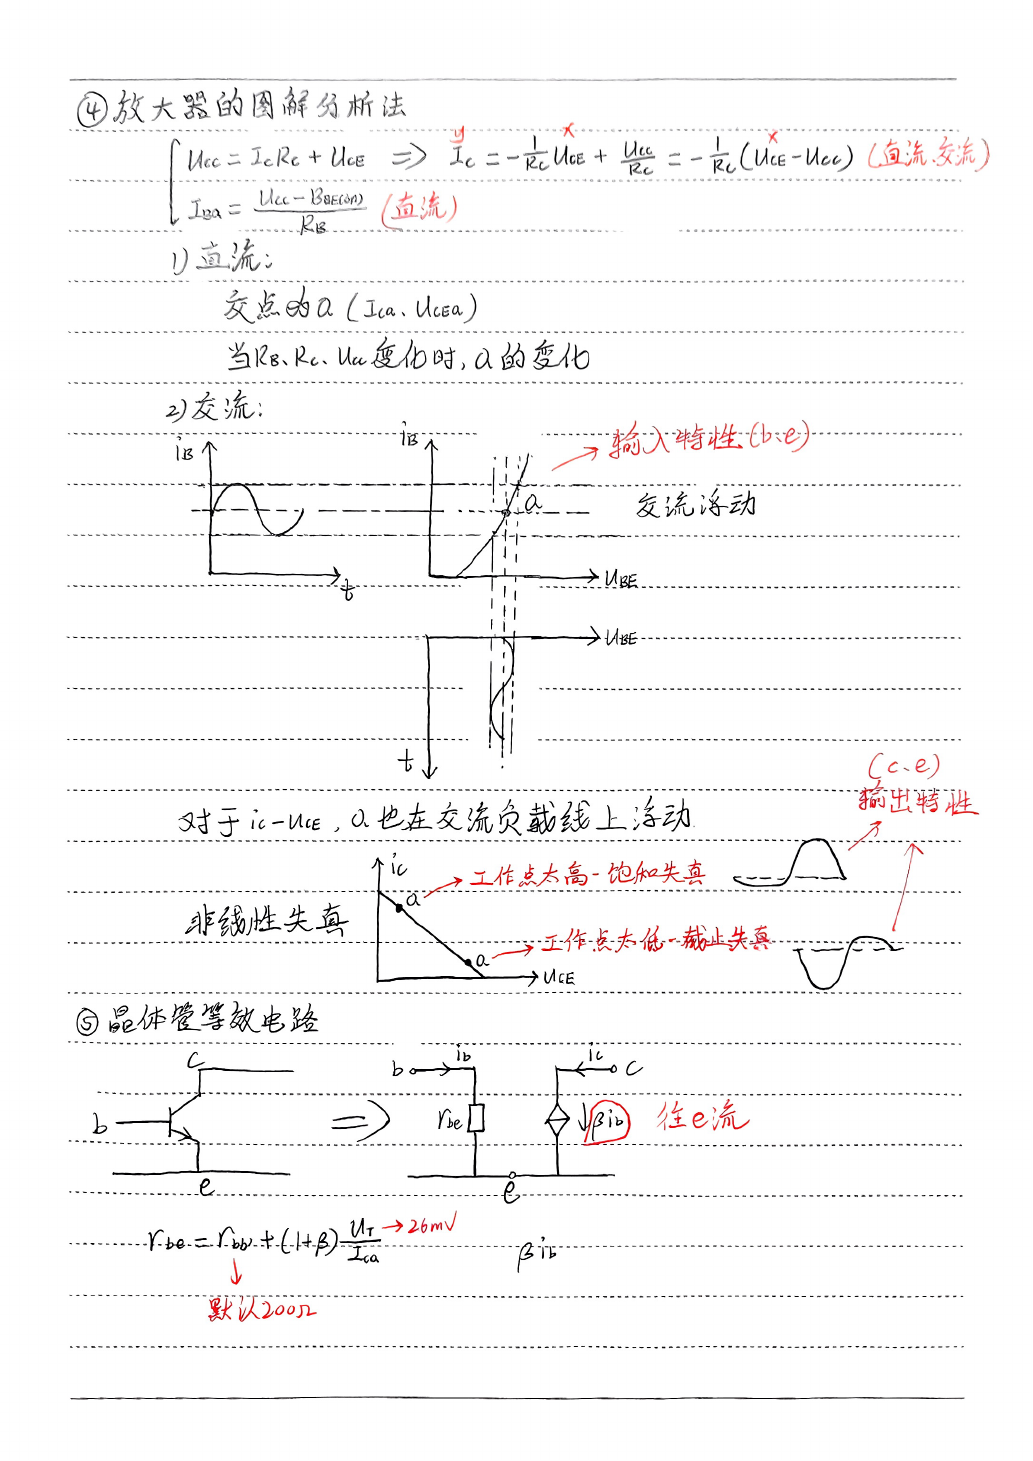 ④放大器的图解分析法
y x x
Ucc = IcRc + UCE ⇒ Ic = -1/Rc UCE + Ucc/Rc = -1/Rc (UCE - Ucc) (直流、交流)
IBQ = (Ucc - BBE(on))/RB (直流)
1) 直流:
交点为Q (ICQ、UCEQ)
当RB、Rc、Ucc变化时, Q的变化
2) 交流:
iB iB → 输入特性 (b、e)
Q 交流浮动
t UBE
UBE
t
(c、e)
输出特性
对于ic-UCE, Q也在交流负载线上浮动
ic
Q → 工作点太高-饱和失真
非线性失真
Q → 工作点太低-截止失真
UCE
⑤晶体管等效电路
c b ib ic c
b ⇒ rbe ↓βib 往e流
e e
rbe = rbb' + (1+β) UT/ICQ → 26mV
βib
默认200Ω